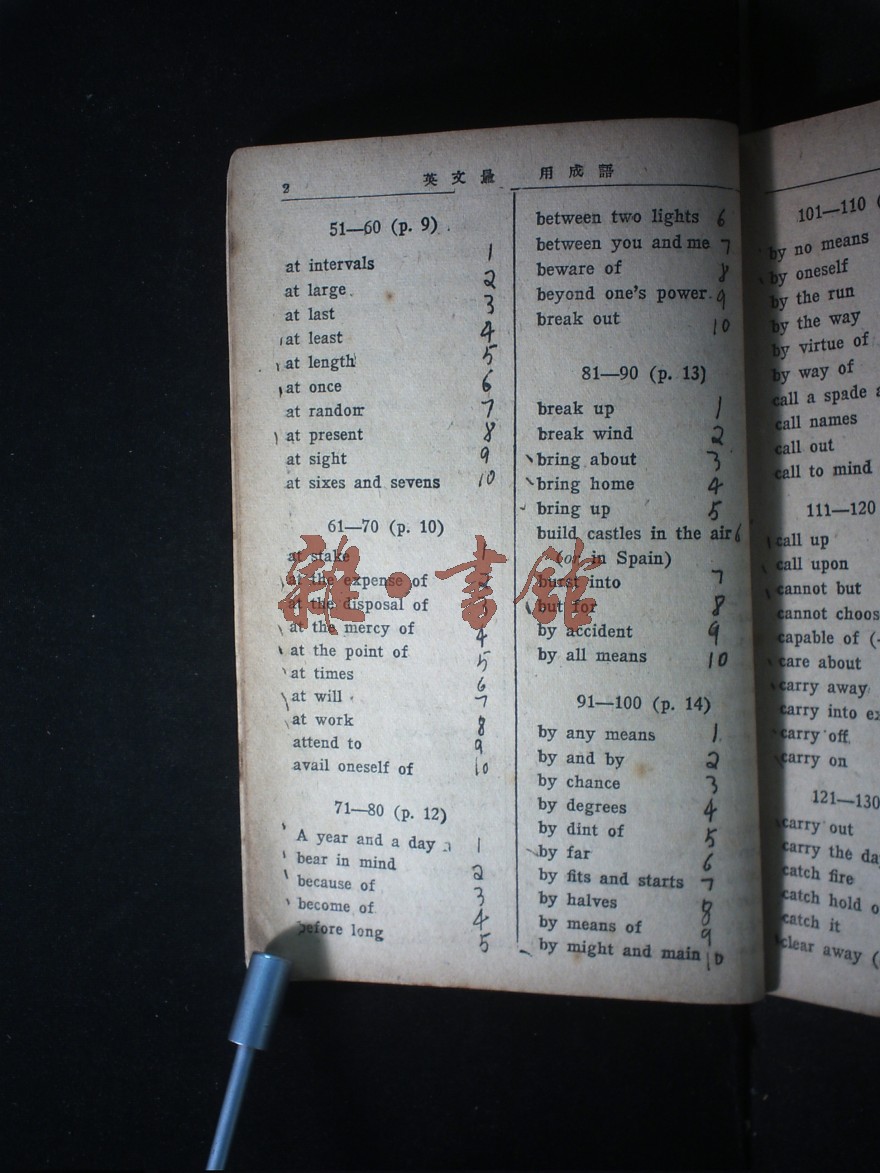 2
英文最 用成語
51—60 (p. 9)
at intervals 1
at large 2
at last 3
at least 4
at length 5
at once 6
at random 7
at present 8
at sight 9
at sixes and sevens 10
61—70 (p. 10)
at stake 1
at the expense of 2
at the disposal of 3
at the mercy of 4
at the point of 5
at times 6
at will 7
at work 8
attend to 9
avail oneself of 10
71—80 (p. 12)
A year and a day 1
bear in mind 2
because of 3
become of 4
before long 5
between two lights 6
between you and me 7
beware of 8
beyond one's power 9
break out 10
81—90 (p. 13)
break up 1
break wind 2
bring about 3
bring home 4
bring up 5
build castles in the air 6
(or in Spain)
burst into 7
but for 8
by accident 9
by all means 10
91—100 (p. 14)
by any means 1
by and by 2
by chance 3
by degrees 4
by dint of 5
by far 6
by fits and starts 7
by halves 8
by means of 9
by might and main 10
101—110 (
by no means
by oneself
by the run
by the way
by virtue of
by way of
call a spade
call names
call out
call to mind
111—120
call up
call upon
cannot but
cannot choos
capable of (
care about
carry away
carry into
carry off
carry on
121—130
carry out
carry the da
catch fire
catch hold o
catch it
clear away (
雜·書館